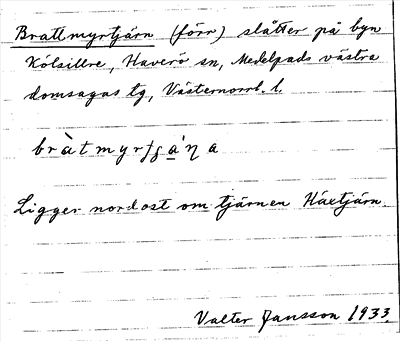 Brattmyrtjärn (förr) slåtter på byn
Kölsillre, Haverö sn, Medelpads västra
domsagas tg, Västernorrl. l.
Ligger nordost om tjärnen Häxtjärn.
Valter Jansson 1933.